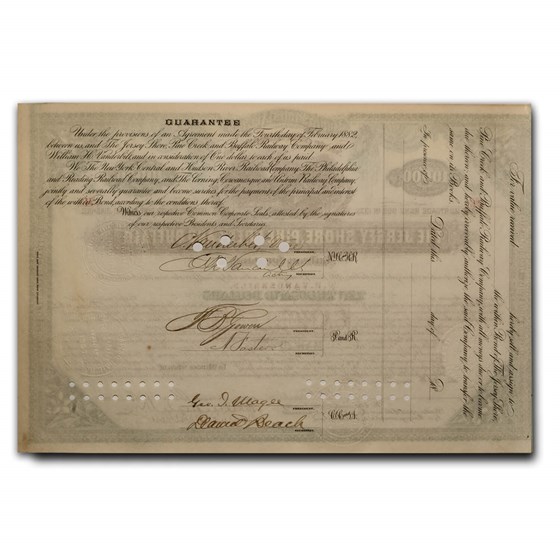 GUARANTEE
Under the provisions of an Agreement made the Fourth day of February 1882,
between us and The Jersey Shore, Pine Creek and Buffalo Railway Company; and
William H. Vanderbilt and in consideration of One dollar to each of us paid
We The New York Central and Hudson River Railroad Company, The Philadelphia
and Reading Railroad Company, and The Corning, Cowanesque and Antrim Railway Company,
jointly and severally guarantee and become sureties for the payments of the principal and interest
of the within Bond, according to the conditions thereof.
Witness our respective Common Corporate Seals, attested by the signatures
of our respective Presidents and Secretaries.
PRESIDENT
N.Y.C. & H.R.R.
SECRETARY
PRESIDENT
P. and R. R.
SECRETARY
Geo. J. Magee
PRESIDENT
David Beach
SECRETARY
For value received hereby sell and assign to
the within Bond of The Jersey Shore,
Pine Creek and Buffalo Railway Company, with all moneys due or to become
due thereon and hereby irrevocably authorize the said Company to transfer the
same on its Books.
Dated this day of 18
In presence of